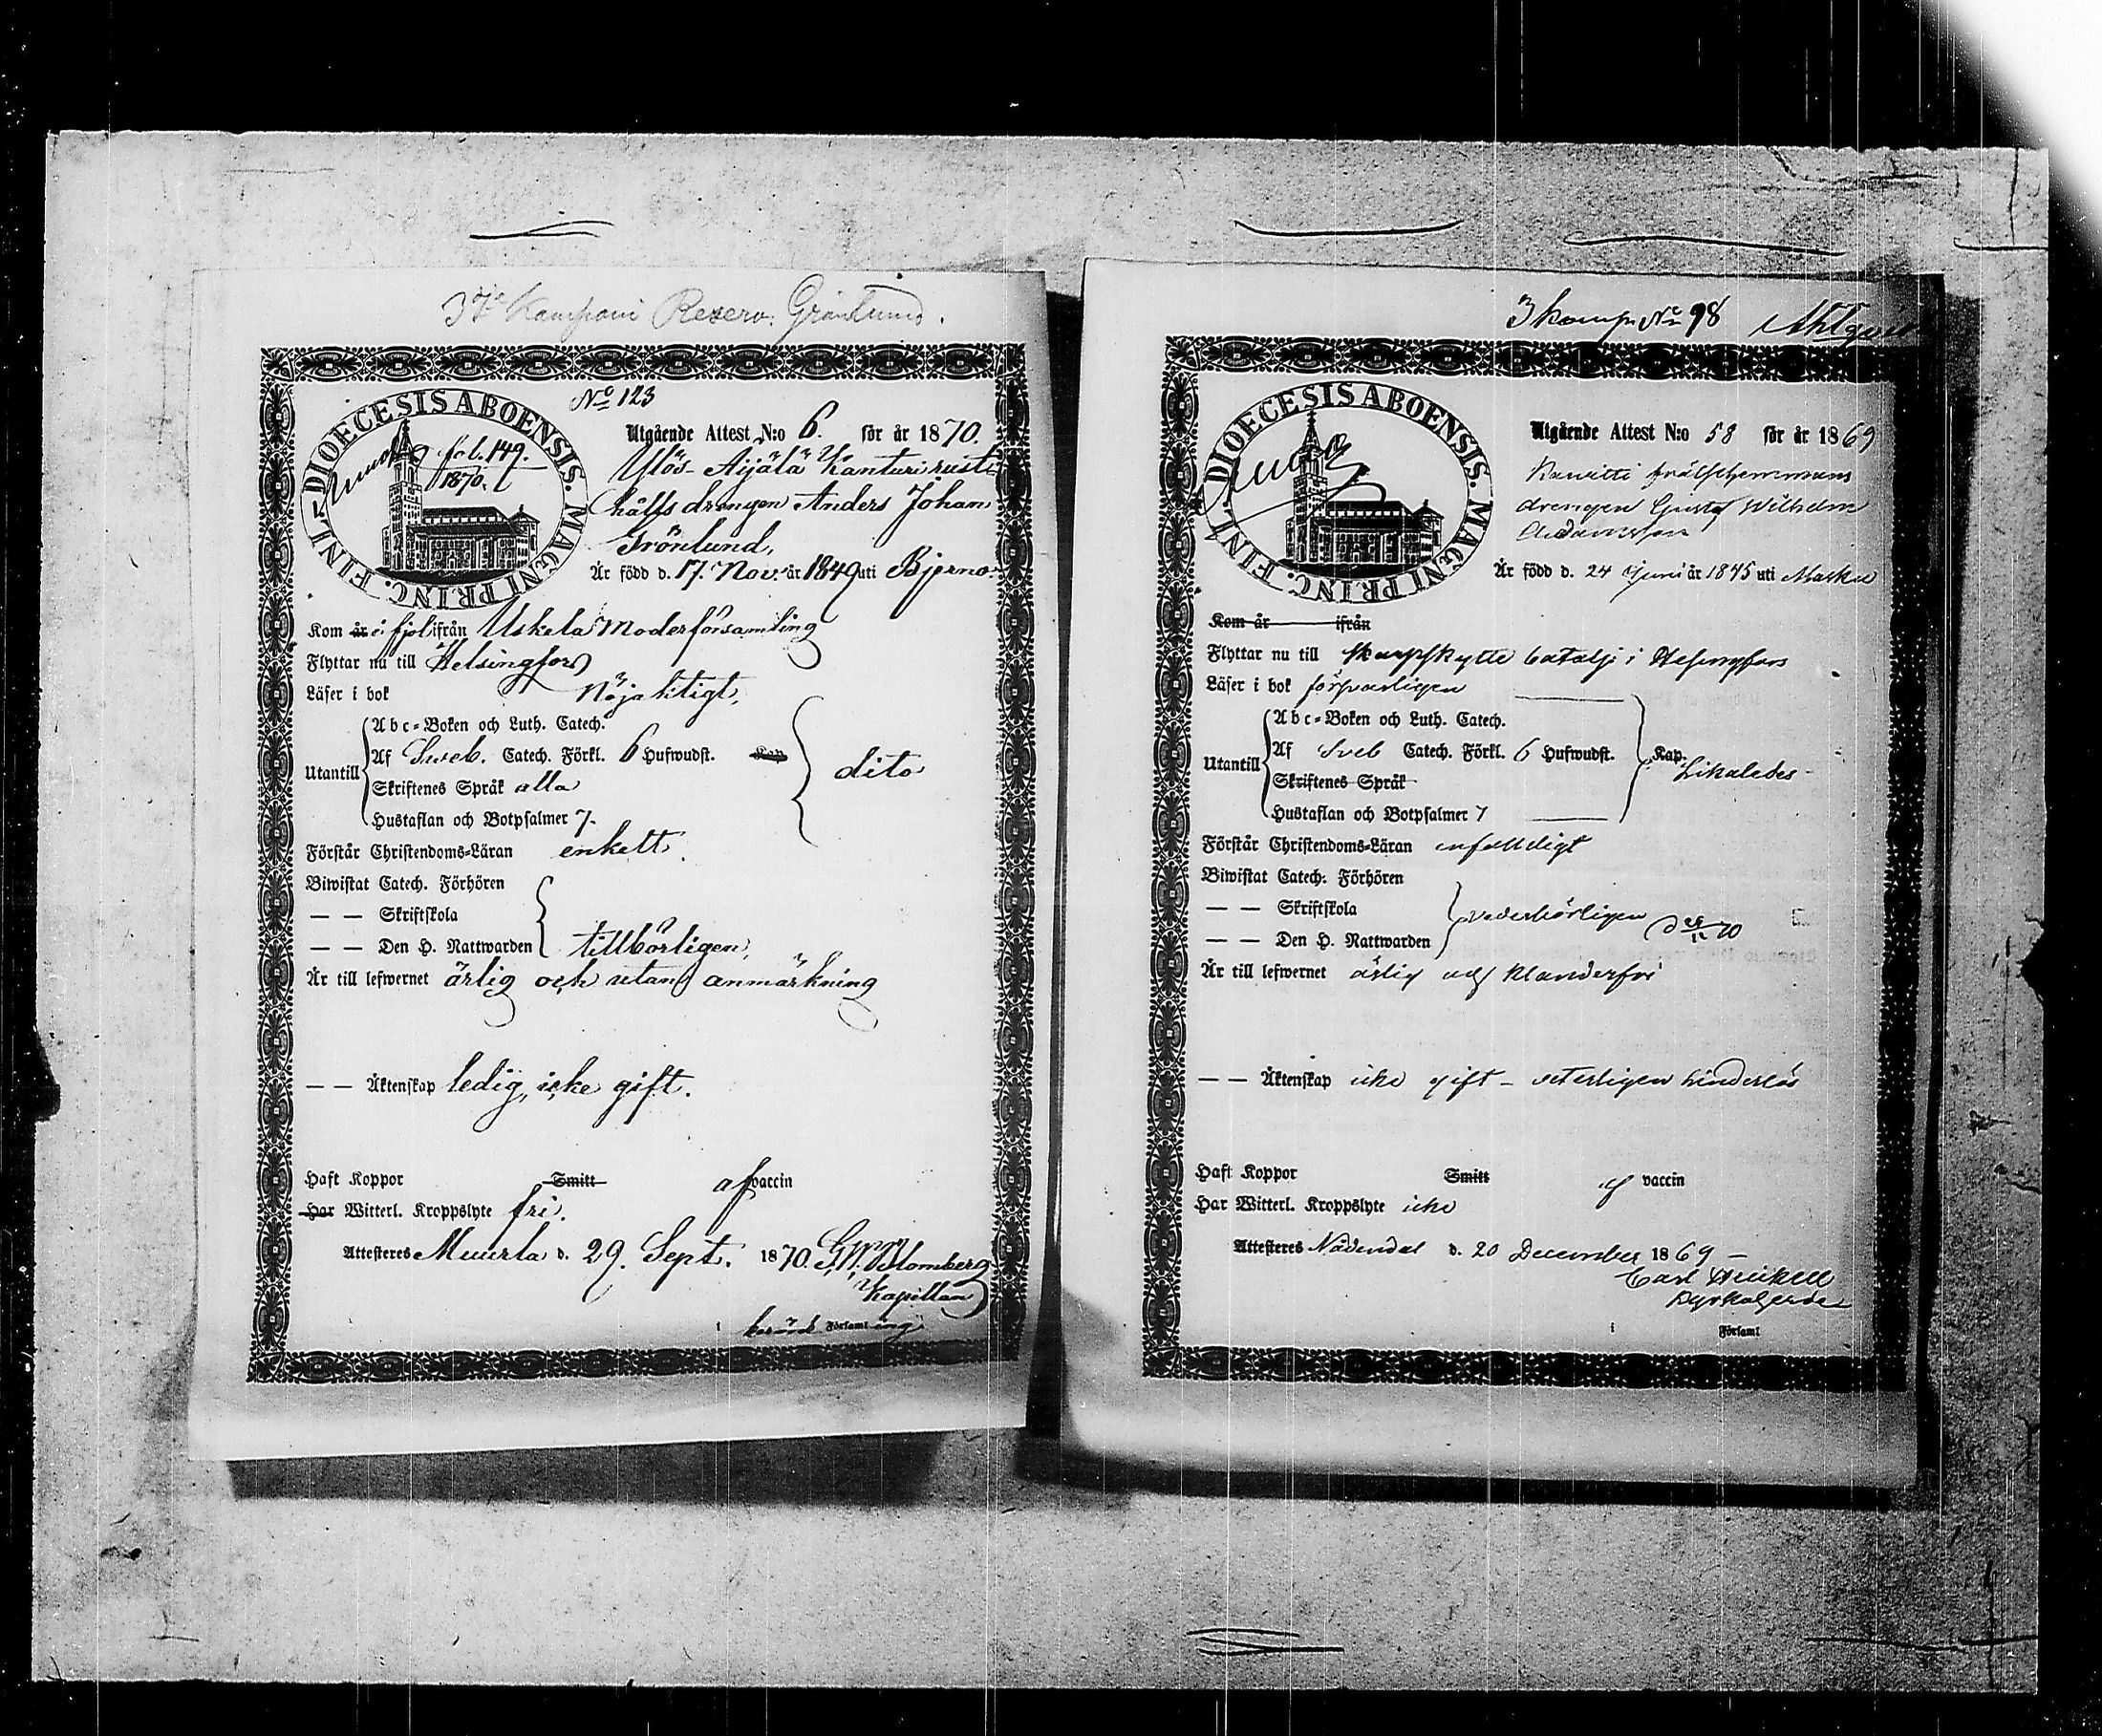 3dje Kompani Reserv. Grönlund.
No 123
DIOECESIS ABOENSIS. MAGNI PRINC. FINL.
fol. 149.
1870.
Utgående Attest N:o 6. för år 1870.
Ylös-Aijälä Kanturi rust-
hålls drengen Anders Johan
Grönlund,
Är född d. 17. Nov. år 1849 uti Bjerno.
Kom år i fjol ifrån Uskela Moderförsamling
Flyttar nu till Helsingfors
Läser i bok Nöjaktigt,
Utantill
Abc-Boken och Luth. Catech.
Af Sveb. Catech. Förkl. 6 Hufwudst. Kap
Skriftenes Språk alla
Hustaflan och Botpsalmer 7.
dito
Förstår Christendoms-Läran enkelt.
Biwistat Catech. Förhören
— — Skriftskola
— — Den H. Nattwarden tillbörligen,
Är till lefwernet ärlig och utan anmärkning
— — Äktenskap ledig, icke gift.
Haft Koppor Smitt af vaccin
Har Witterl. Kroppslyte fri.
Attesteras Muurla d. 29. Sept. 1870. G.W. Blomberg
Kapellan
i berörde Församling
3 komp. No 98 Ahlqvist
DIOECESIS ABOENSIS. MAGNI PRINC. FINL.
Utgående Attest N:o 58 för år 1869
frälsehemmans
drengen Gustaf Wilhelm
Adamsson
Är född d. 24 Juni år 1845 uti Masku
Kom år ifrån
Flyttar nu till Skarpskytte batalj i Helsingfors
Läser i bok försvarligen
Utantill
Abc-Boken och Luth. Catech.
Af Sveb Catech. Förkl. 6 Hufwudst.
Skriftenes Språk
Hustaflan och Botpsalmer 7
Kap. Likaledes
Förstår Christendoms-Läran enfaldigt
Biwistat Catech. Förhören
— — Skriftskola
— — Den H. Nattwarden
vederbörligen
Är till lefwernet ärlig och klanderfri
— — Äktenskap icke gift - veterligen hinderlös
Haft Koppor Smitt af vaccin
Har Witterl. Kroppslyte icke
Attesteras Nådendal d. 20 December 1869 —
Carl
i Förfaml